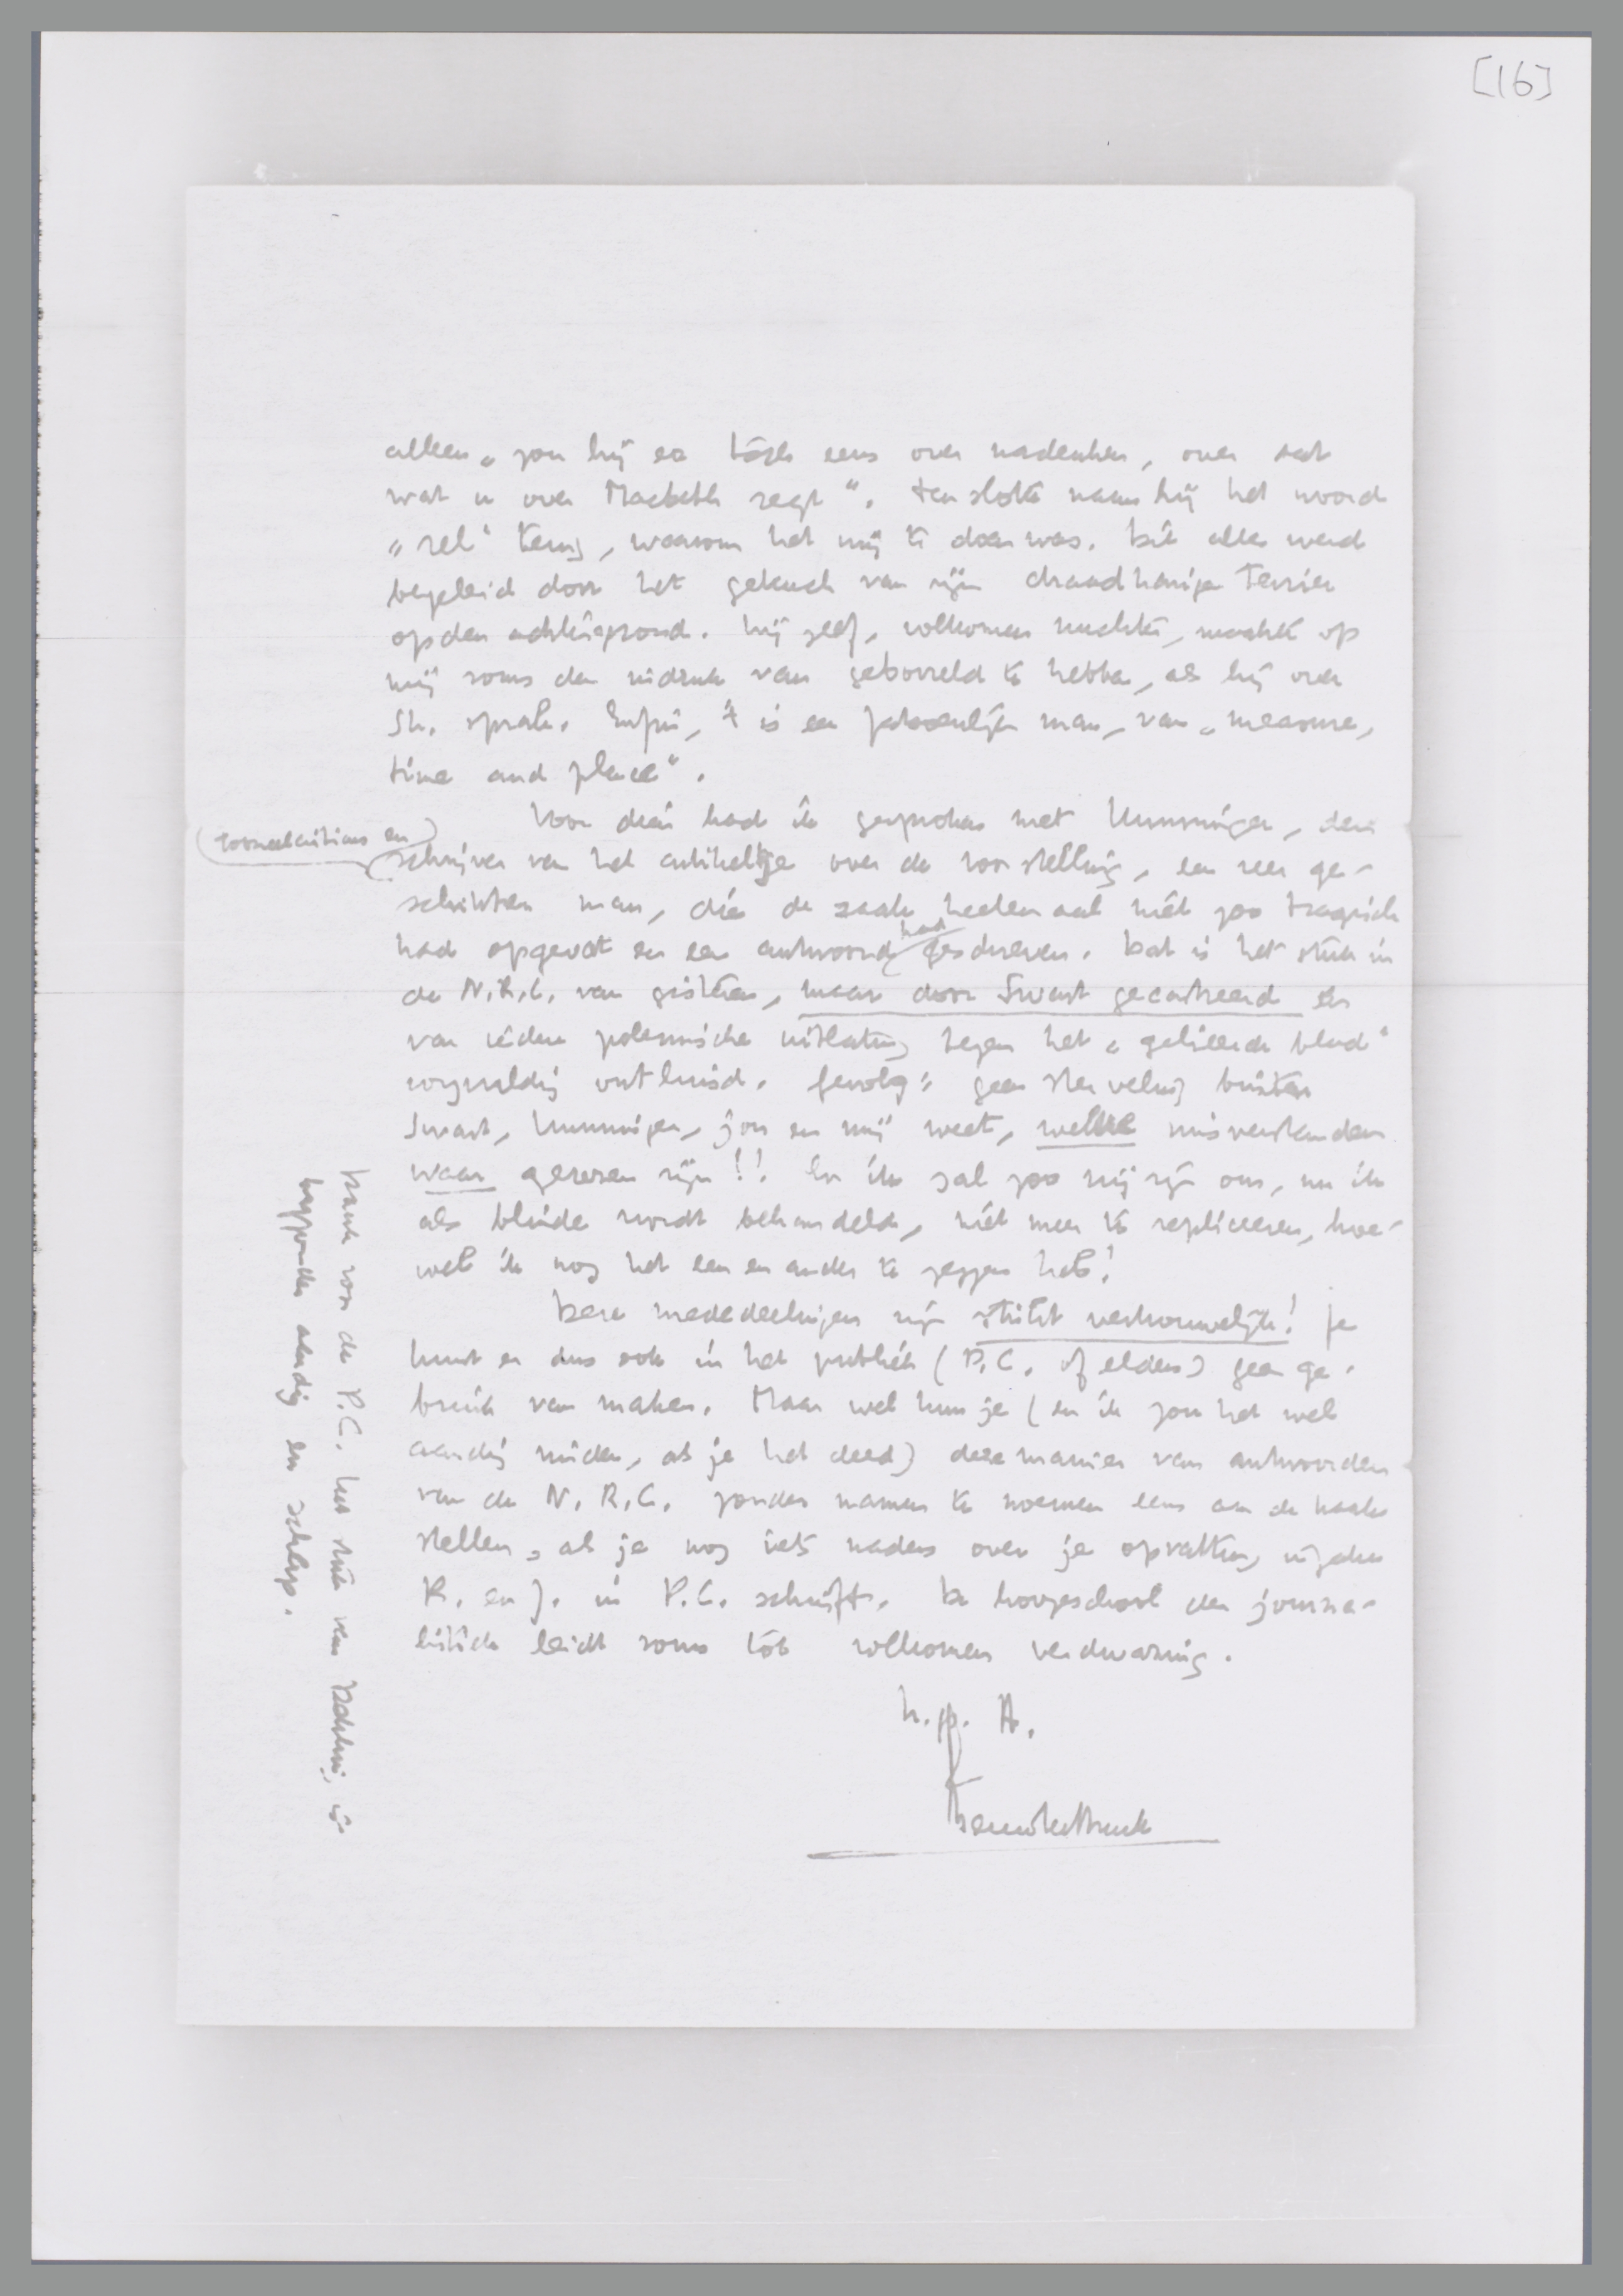 [16]
alleen „zou hij er tòch eens over nadenken, over dat
wat u over Macbeth zegt“. Ten slotte nam hij het woord
„rel“ terug, waarom het mij te doen was. Dit alles werd
begeleid door het gekuch van zijn draadharige terrier
op den achtergrond. Hij zelf, volkomen nuchter, maakte op
mij soms den indruk van geborreld te hebben, als hij over
Sh. sprak. Enfin, 't is een fatsoenlijk man, van „measure,
time and place“.
Voor dien had ik gesproken met Hunningher, den
(tooneelcriticus en)
schrijver van het artikeltje over de voorstelling, een zeer ge-
schikten man, die de zaak heelemaal niet zoo tragisch
had opgevat en een antwoord had geschreven. Dat is het stuk in
de N.R.C. van gisteren, maar door Swart gecastreerd en
van iedere polemische uitlating tegen het „gelieerde blad“
zorgvuldig ontluisd. Gevolg: geen sterveling buiten
Swart, Hunningher, jou en mij weet, welke misverstanden
waar gerezen zijn!! En ik zal zoo vrij zijn om, nu ik
als blinde wordt behandeld, niet meer te repliceeren, hoe-
wel ik nog het een en ander te zeggen heb!
Deze mededeelingen zijn strikt vertrouwelijk! Je
kunt er dus ook in het publiek (P.C. of elders) geen ge-
bruik van maken. Maar wel kun je (en ik zou het wel
aardig vinden, als je het deed) deze manier van antwoorden
van de N.R.C. zonder namen te noemen eens aan de kaak
stellen, als je nog iets naders over je opvatting inzake
R. en J. in P.C. schrijft. De hoogeschool der journa-
listiek leidt soms tot volkomen verdwazing.
h.g. t.
Menno ter Braak
Dank voor de P.C. het stuk van is
bijzonder aardig en scherp.